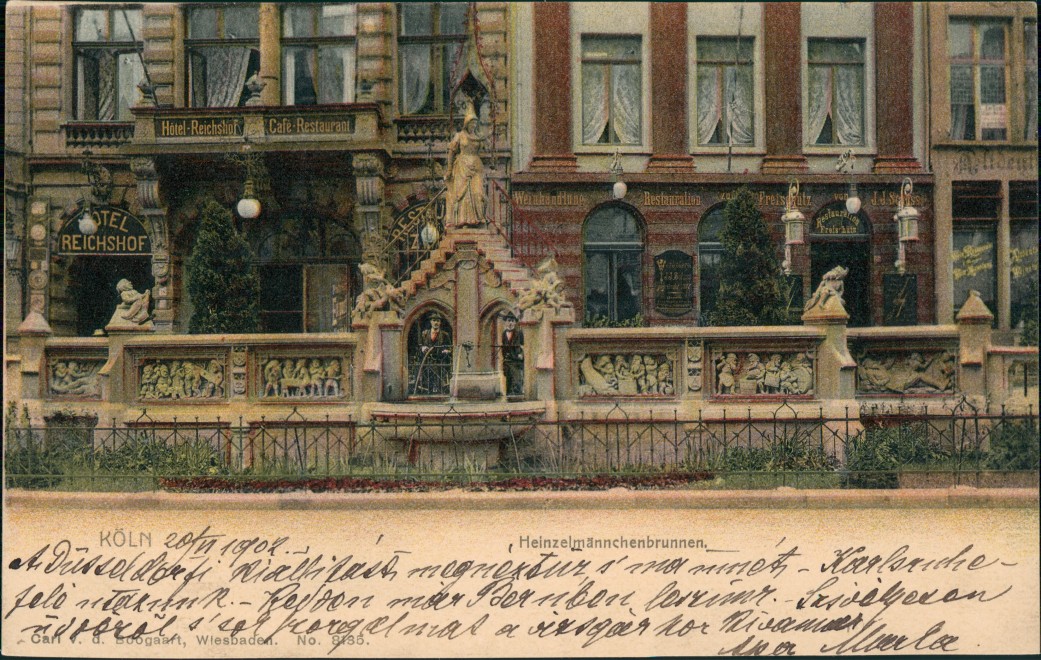 Hôtel-Reichshof Café-Restaurant
HOTEL
REICHSHOF
Weinhandlung Restauration zum Freischütz von J.J.
Restauration
Freischütz
KÖLN 20/VI 1902.
Heinzelmännchenbrunnen.
A Düsseldorfi kiállítást megnéztük s ma innét - Karlsruhe-
felé utazunk. - Kedden már Bernben leszünk. - Szívélyesen
üdvözöl s jó szorgalmat a vizsgákhoz kívánva
Carl v. d. Boogaart, Wiesbaden. No. 8135.
Apa